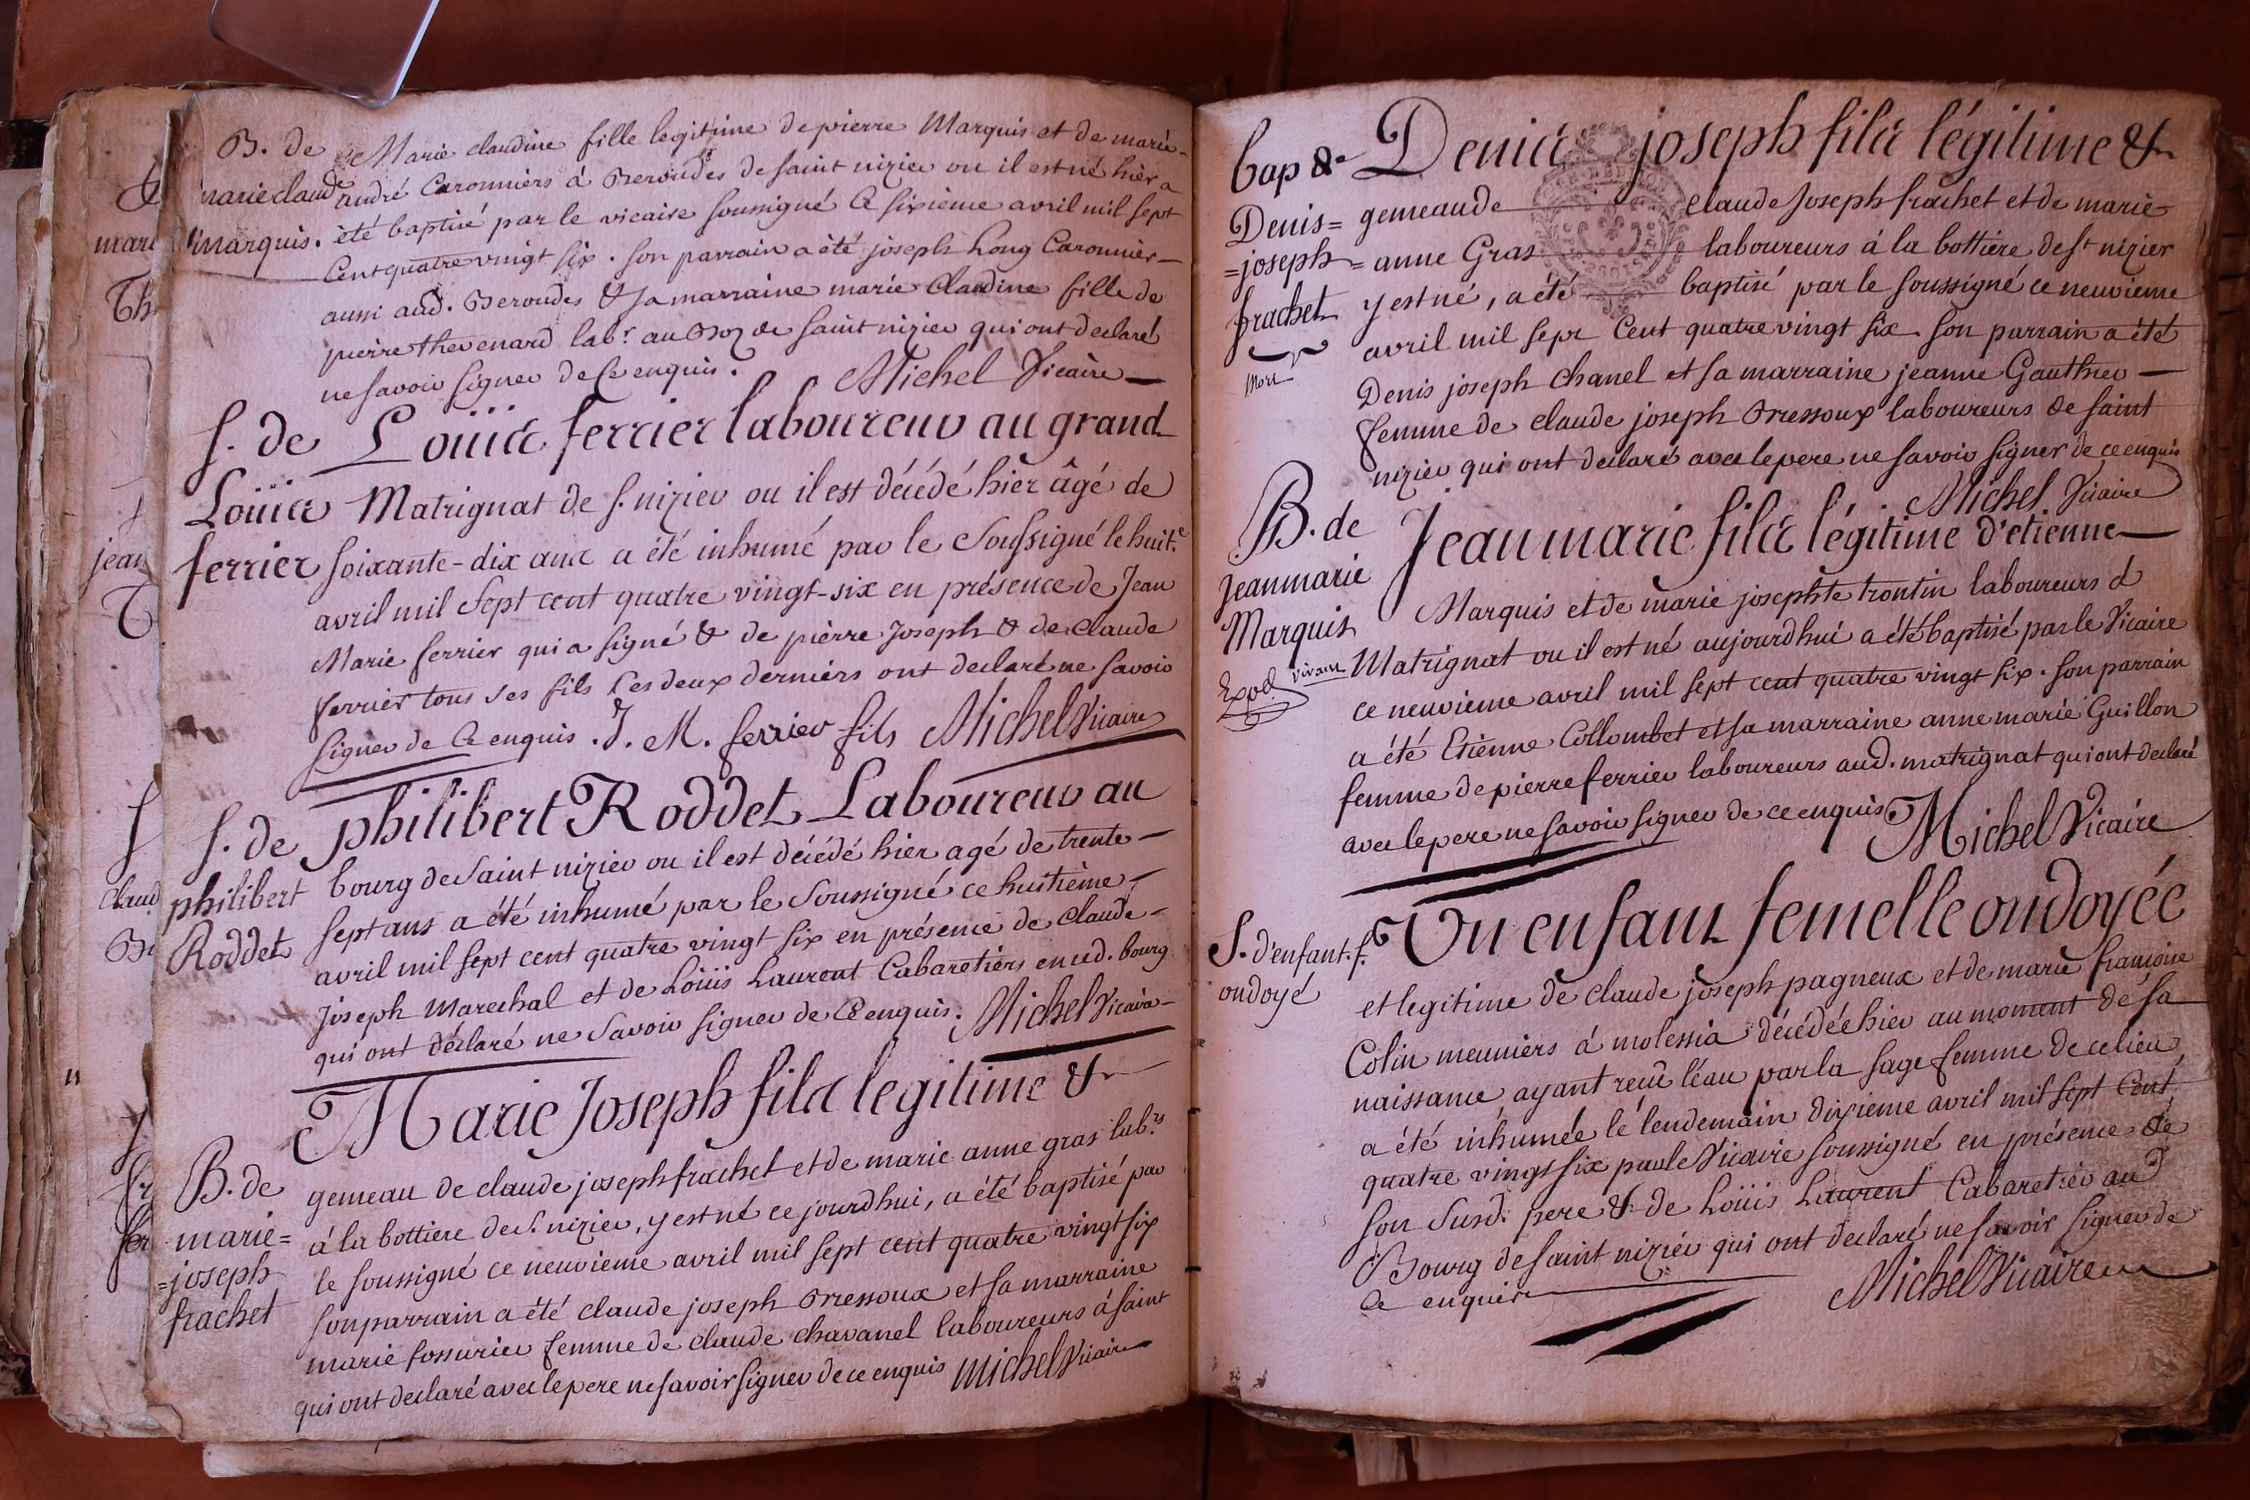 B. de
marie claude
marquis.
Marie claudine fille legitime de pierre Marquis et de marie
andré Caronniers á Beroudes de saint nizier ou il est né hier a
été baptisé par le vicaire soussigné Ce sixième avril mil sept
Cent quatre vingt six. son parrain a été joseph Long Caronnier
aussi aud. Beroudes & sa marraine marie Claudine fille de
pierre thevenard lab.r au Boz de saint nizier qui ont declaré
ne savoir signer de Ce enquis.
Michel Vicaire
S. de
Loüis
ferrier
Loüis ferrier laboureur au grand
Matrignat de S. nizier ou il est décédé hier âgé de
soixante-dix ans a été inhumé par le Soussigné le huit.e
avril mil Sept cent quatre vingt-six en présence de Jean
Marie ferrier qui a signé & de pièrre Joseph & de Claude
ferrier tous ses fils Les deux derniérs ont declaré ne savoir
signer de Ce enquis. J. M. ferrier fils Michel Vicaire
S. de
philibert
Roddet
philibert Roddet Laboureur au
bourg de Saint nizier ou il est décédé hier agé de trente
sept ans a été inhumé par le Soussigné ce huitième
avril mil sept cent quatre vingt six en présence de Claude
Joseph Marechal et de Loüis Laurent Cabaretiérs en ud. bourg
qui ont déclaré ne Savoir signer de Ce enquis. Michel Vicaire
B. de
marie=
=joseph
frachet
Marie Joseph fils legitime &
gemeau de claude joseph frachet et de marie anne gras lab.rs
á la bottiere de S. nizier, y est né ce jourdhui, a été baptisé par
le soussigné ce neuvieme avril mil sept cent quatre vingt six
son parrain a été claude joseph Bressoux et sa marraine
marie fossurier femme de claude chavanel laboureurs á saint
qui ont declaré avec le pere ne savoir signer de ce enquis Michel Vicaire
bap de
Denis=
=joseph=
frachet
Mort
Denis joseph fils légitime &
gemeau de claude Joseph frachet et de marie
anne Gras laboureurs á la bottiere de St nizier
y est né, a été baptisé par le soussigné ce neuvieme
avril mil sept Cent quatre vingt six. Son parrain a été
Denis joseph Chanel et sa marraine jeanne Gauthier
femme de claude joseph Bressoux laboureurs de saint
nizier qui ont declaré avec le pere ne savoir signer de ce enquis
Michel Vicaire
B. de
Jeanmarie
Marquis
vivant
Exped
Jean marie fils légitime d'etienne
Marquis et de marie josephte trontin laboureurs á
Matrignat ou il est né aujourdhui a été baptisé par le Vicaire
ce neuvieme avril mil sept cent quatre vingt six. son parrain
a été Etienne Collombet et sa marraine anne marie Guillon
femme de pierre ferrier laboureurs aud. matrignat qui ont declaré
avec le pere ne savoir signer de ce enquis Michel Vicaire
S. d'enfant. f.
ondoyé
Un enfant femelle ondoyée
et legitime de claude joseph pagneux et de marie francoise
Colin meuniérs á molessia décédée hier au moment de sa
naissance ayant reçu l'éau par la sage femme de ce lieu
a été inhumée lé lendemain dixieme avril mil sept Cent
quatre vingt six par le Vicaire soussigné en présence de
son Susd. pere & de Loüis Laurent Cabaretier aud
Bourg de saint niziér qui ont declaré ne savoir signer de
Ce enquis
Michel Vicaire